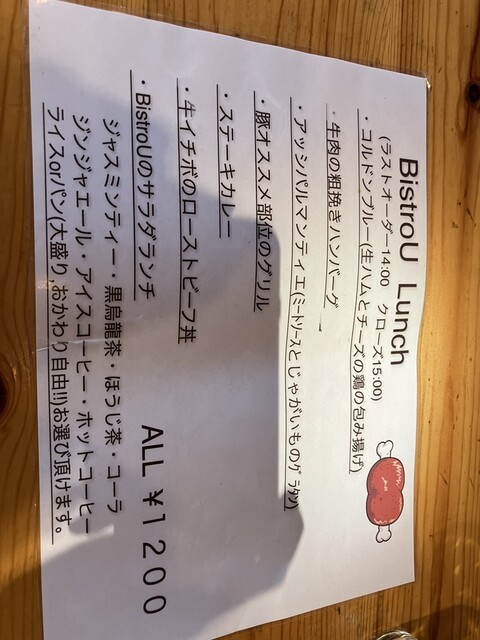 BistroU Lunch
(ラストオーダー14:00 クローズ15:00)
・コルドンブルー(生ハムとチーズの鶏の包み揚げ)
・牛肉の粗挽きハンバーグ
・アッシパルマンティエ(ミートソースとじゃがいものグラタン)
・豚オススメ部位のグリル
・ステーキカレー
・牛イチボのローストビーフ丼
・BistroUのサラダランチ
ALL ¥1200
ジャスミンティー・黒烏龍茶・ほうじ茶・コーラ
ジンジャエール・アイスコーヒー・ホットコーヒー
ライスorパン(大盛り,おかわり自由!!)お選び頂けます。